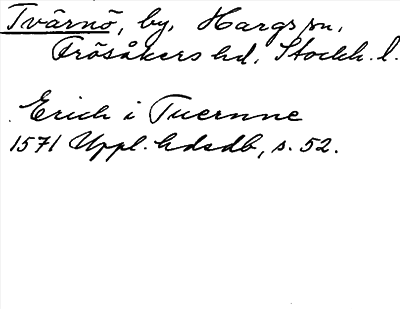 Tvärnö, by, Hargs sn,
Frösåkers hd, Stockh. l.
Erich i Tuernne
1571 Uppl. hdsdb, s. 52.